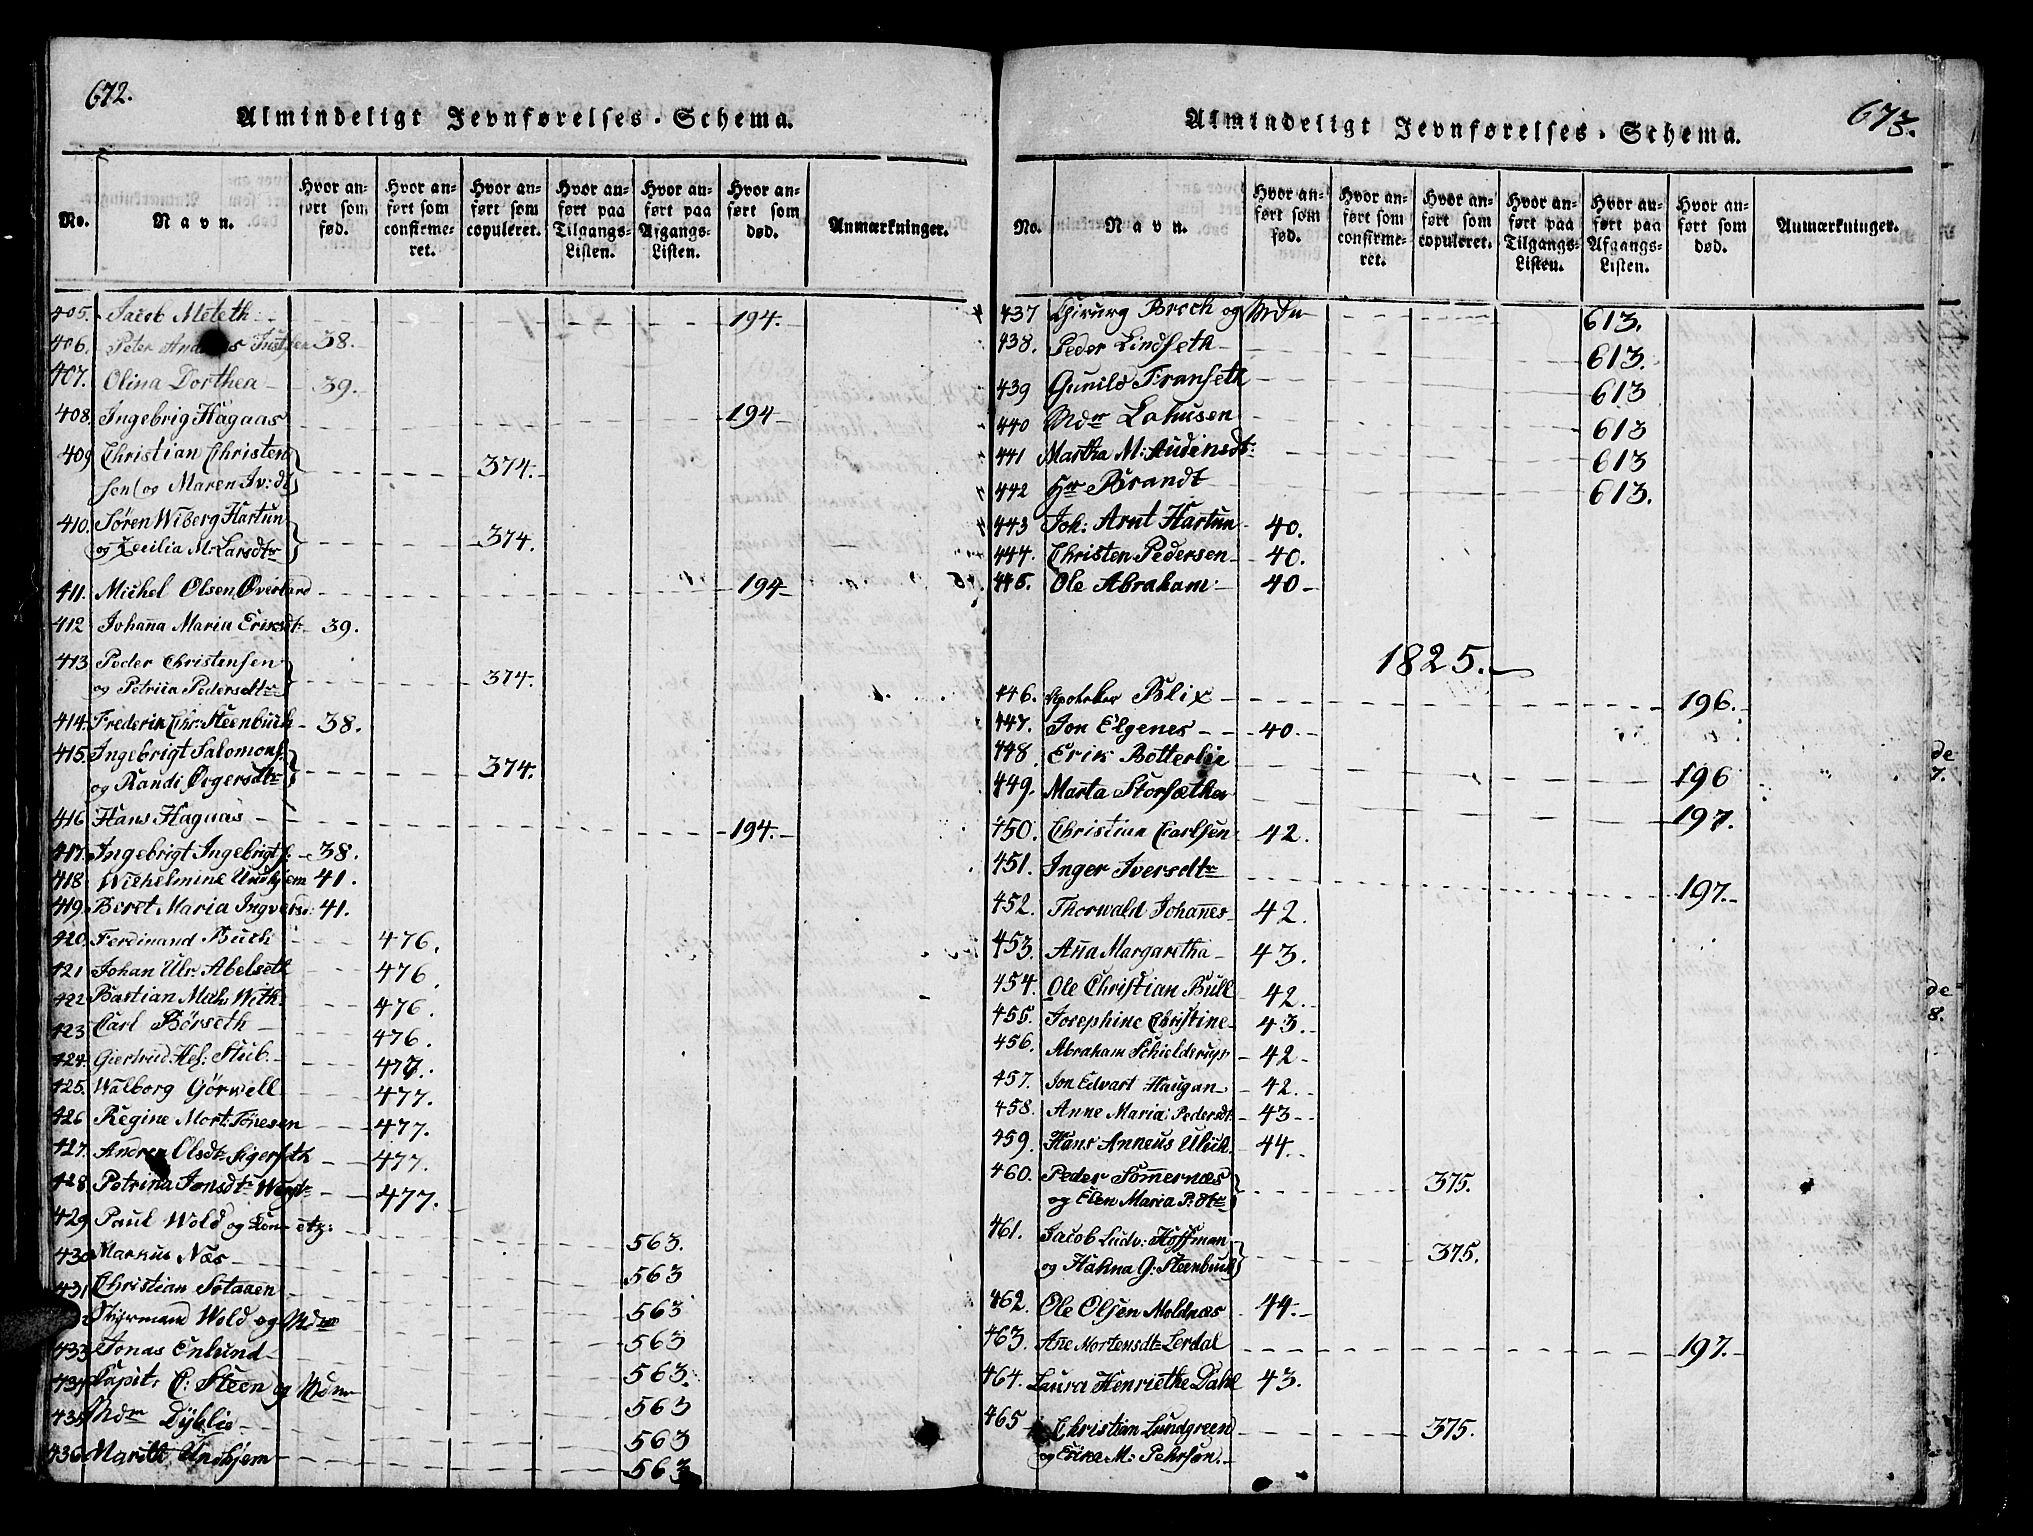 672.
Almindeligt Jevnførelses-Schema.
No. Navn. Hvor anført som fød. Hvor anført som confirmeret. Hvor anført som copuleret. Hvor anført paa Tilgangs-Listen. Hvor anført paa Afgangs-Listen. Hvor anført som død. Anmærkninger.
405. Jacob Meleth 194.
406. Peter Justsen 38.
407. Olina Dorthea 39.
408. Ingebrig Hagaas 194
409 Christian Christen
sen og Maren Iv:dt 374.
410. Søren Wiberg Hartun
og Cecilia M: Larsdtr 374.
411. Michel Olsen Øverland 194
412 Johana Maria Eriksdt. 39.
413 Peder Christensen
og Petrina Pedersdtr 374.
414. Frederik Chr: Steenbuch 38.
415. Ingebrigt Salomons.
og Randi Ørgersdtr 374.
416 Hans Hagaas 194.
417. Ingebrigt Ingebrigts: 38.
418 Wilhelmine Undhjem 41.
419. Beret Maria Ingvers: 41.
420 Ferdinand Buch 476.
421 Johan Ulr. Abelseth 476
422 Bastian Mich: With: 476.
423 Carl Børseth 476.
424. Giertrud Hel: Stub. 477.
425. Walborg Gørwell 477.
426 Regine Mort: Tønesen 477.
427. Andrea Olsdt: Sigerseth 477.
428. Petrina Jonsdtr 477.
429 Paul Wold og Kone etz: 563.
430 Markus Næs 563
431 Christian Sotaaen 563
Styrmand Wold og Mdme 563
433 Jonas Enlund 563.
434 Capit. C: Steen og Mdme 563
435 Mdm Dyblie 563
436 Marith Undhjem 563
673.
Almindeligt Jevnførelses-Schema.
No. Navn. Hvor anført som fød. Hvor anført som confirmeret. Hvor anført som copuleret. Hvor anført paa Tilgangs-Listen. Hvor anført paa Afgangs-Listen. Hvor anført som død. Anmærkninger.
437 Chirurg Broch og Mdm 613.
438. Peder Lindseth 613.
439 Gunild Franseth 613
440 Mdr Lohusen 613
441 Martha M: Audensdt: 613
442 Hr Brandt 613.
443 Joh: Arnt Hartun 40.
444. Christen Pedersen 40.
445. Ole Abraham 40
1825.
446. Apotheker Blix 196.
447. Jon Elgenes 40.
448 Erik Botterlie 196
449. Marta Storsæther 197.
450. Christian Carlsen 42.
451. Inger Iversdtr 197.
452. Thorwald Johannes 42.
453. Ana Margaretha 43.
454. Ole Christian Bull 42.
455. Josephine Christine 43.
456. Abraham Schielderup 42
457. Jon Edvart Haugan 42.
458. Anne Maria Pedersdt 43
459. Hans Anneus Ulich 44.
460. Peder Sømernæs
og Elen Maria P:dtr 375.
461. Jacob Ludv: Hoffman
og Hahna G: Steenbuch 375.
462. Ole Olsen Moldnæs 44.
463. Ane Mortensdtr Lerdal 197.
464. Laura Henriethe Dahl 43.
465 Christian Lundgreen
og M: Pehrson. 375.